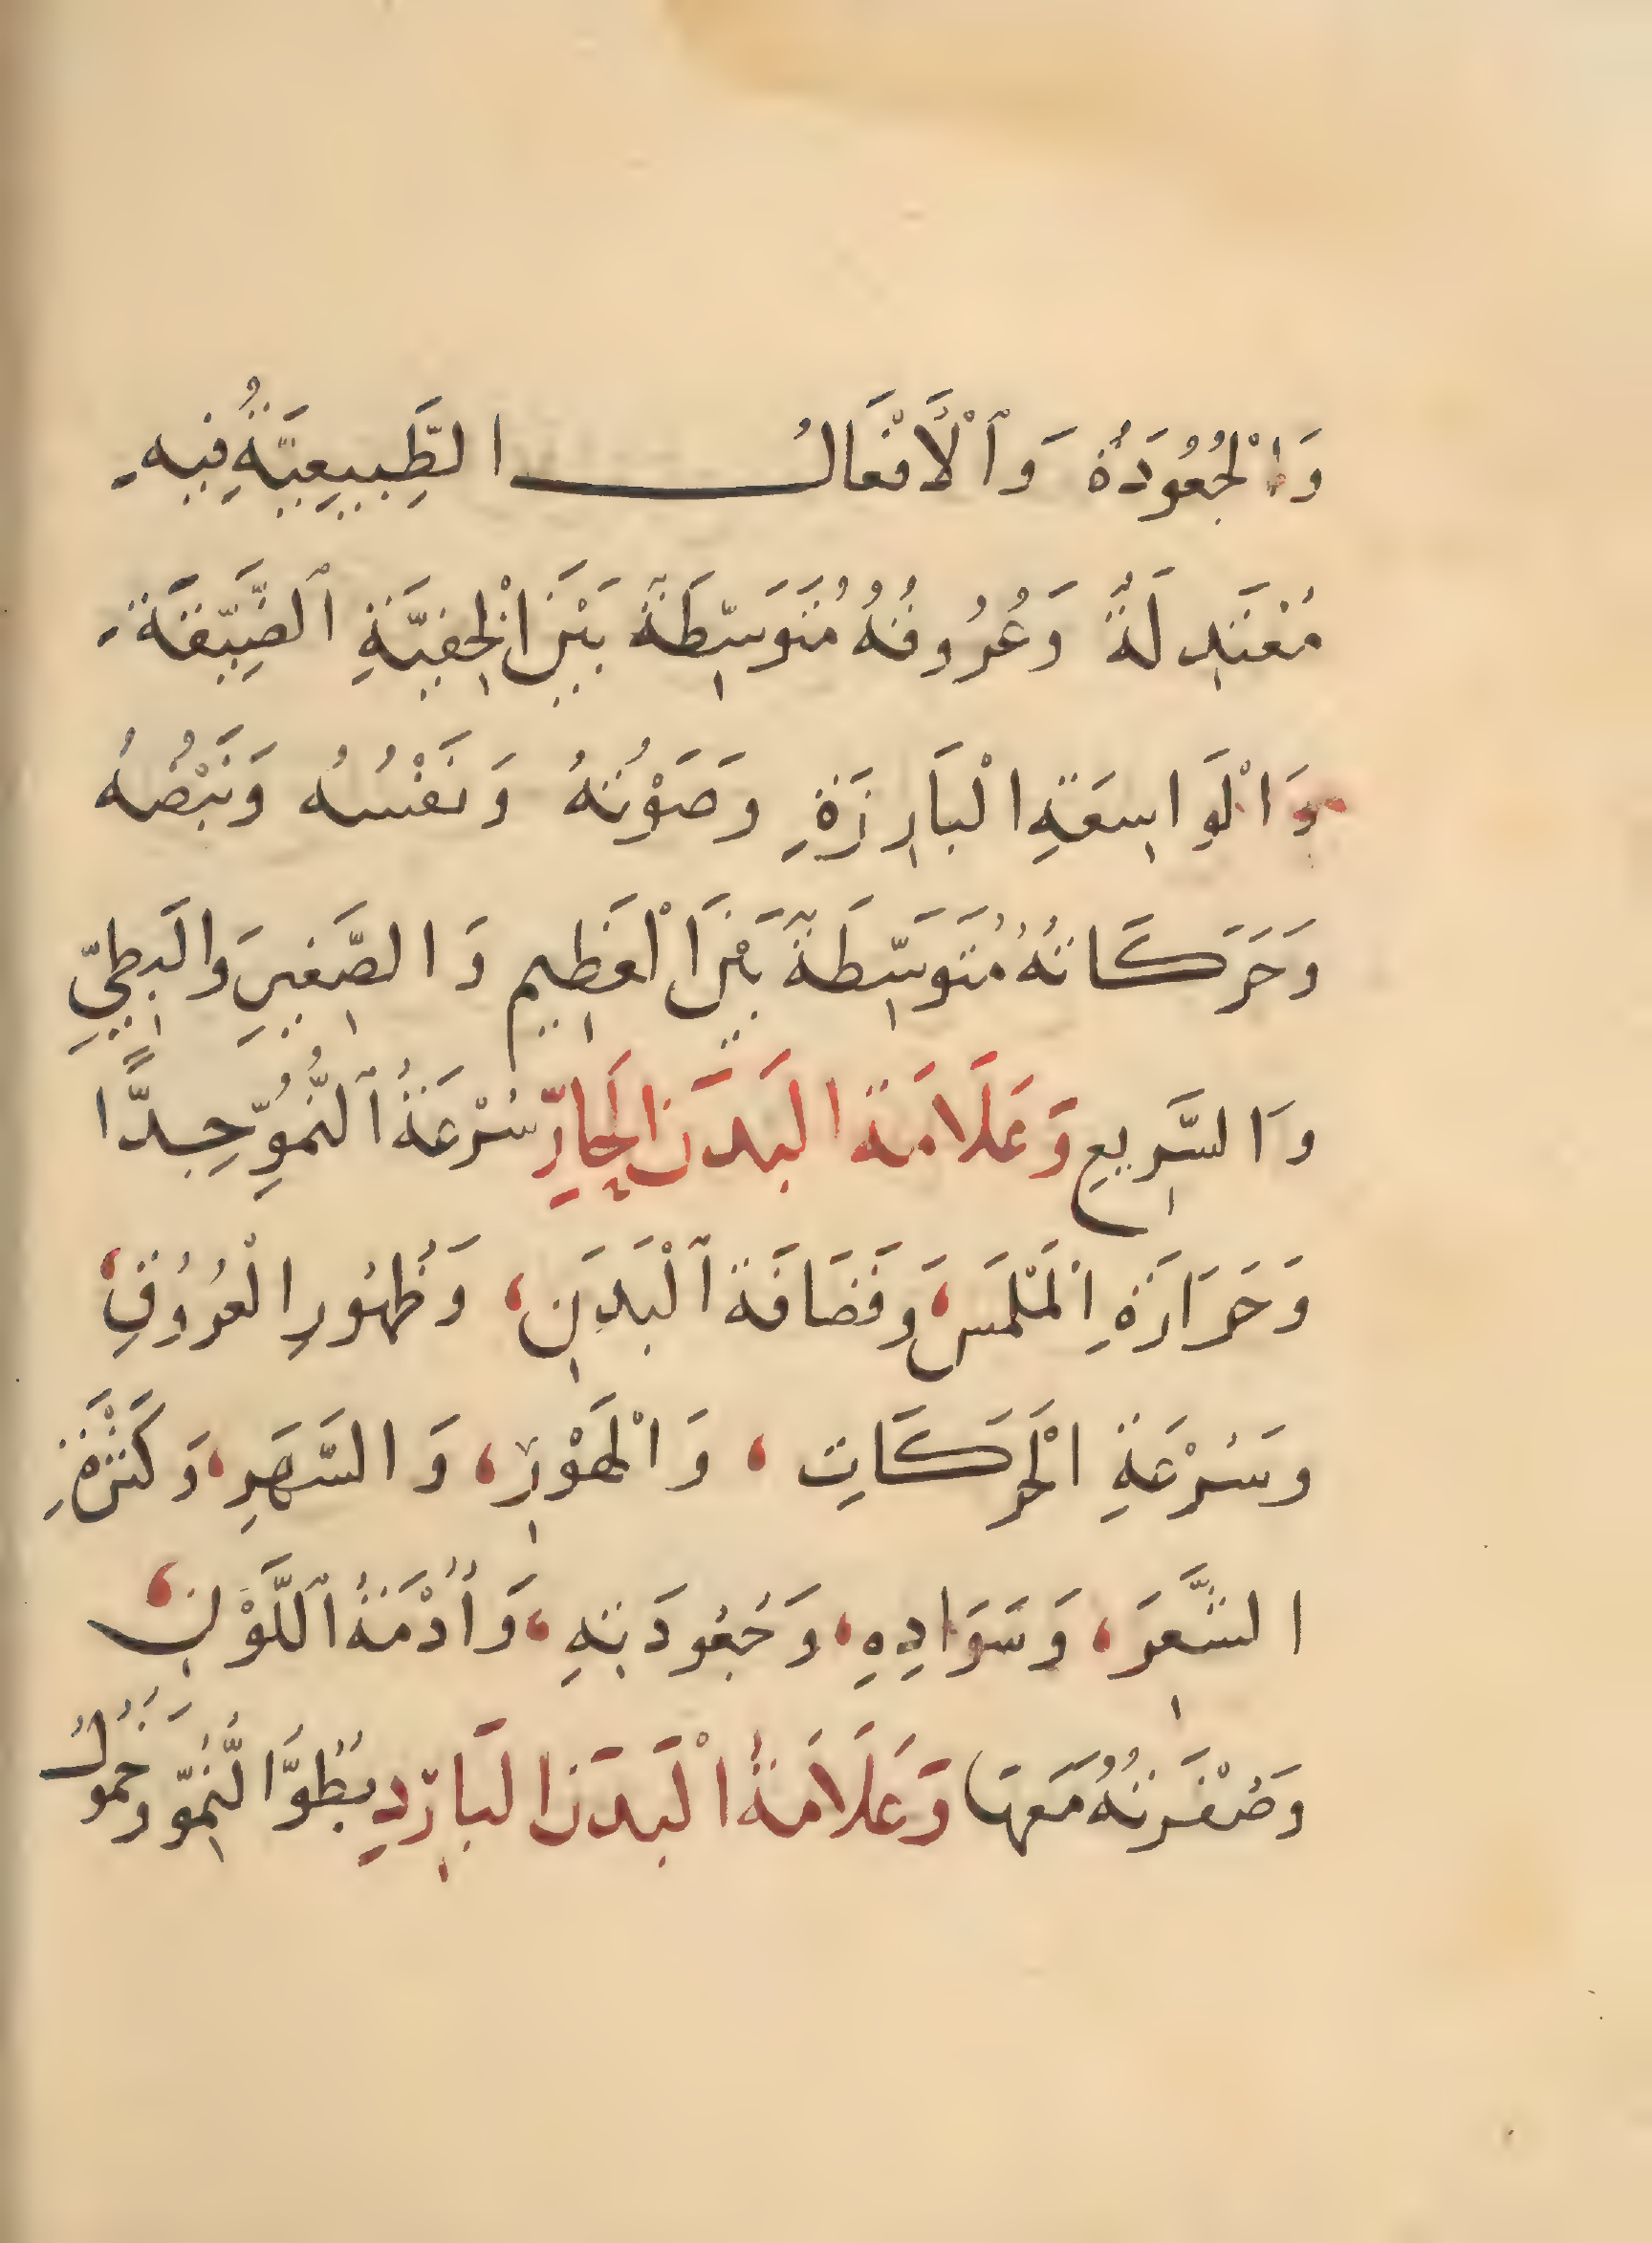 وَالْجُعُودَةُ وَٱلْأَفْعَالُ الطَّبِيعِيَّةُ فِيهِ
مُعْتَدِلَةً وَعُرُوقُهُ مُتَوَسِّطَةً بَيْنَ الْخَفِيَّةِ ٱلضَّيِّقَةِ
وَالْوَاسِعَةِ الْبَارِزَةِ وَصَوْتُهُ وَنَفْسُهُ وَنَبْضُهُ
وَحَرَكَاتُهُ مُتَوَسِّطَةً بَيْنَ الْعَظِيمِ وَالصَّغِيرِ وَالبَطِيِّ
وَالسَّرِيعِ وَعَلَامَةُ البَدَنِ الحَارِّ سُرْعَةُ ٱلنُّمُوِّ جِدًّا
وَحَرَارَةِ الْمَلْمَسِ، وَقَضَافَةِ ٱلْبَدَنِ، وَظُهُورِ الْعُرُوقِ،
وَسُرْعَةِ الْحَرَكَاتِ، وَالْهَوْرِ، وَالسَّهَرِ، وَكَثْرَةِ
الشَّعَرِ، وَسَوَادِهِ، وَجُعُودَتِهِ، وَأُدْمَةُ ٱللَّوْنِ،
وَصُفْرَتُهُ مَعَهَا وَعَلَامَةُ الْبَدَنِ البَارِدِ بُطُوُّ النُّمُوِّ وخُمُولُ